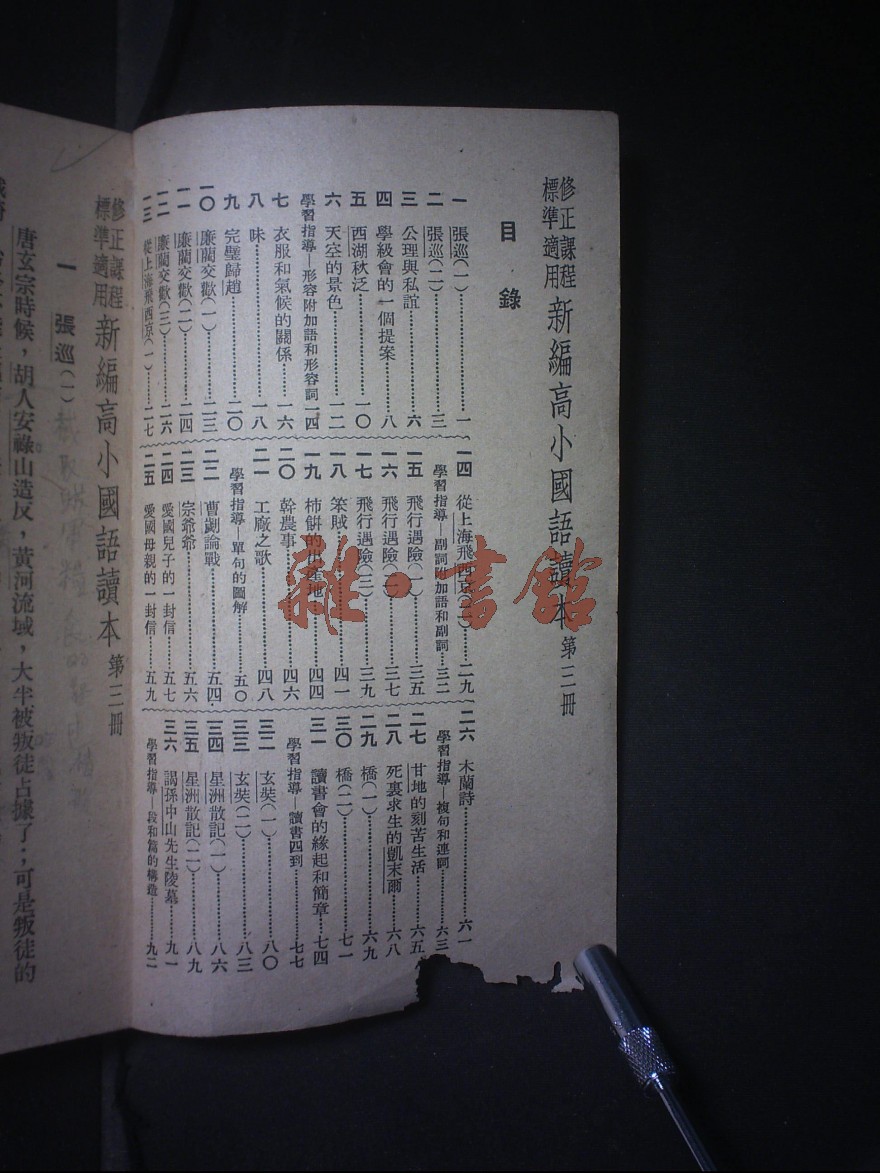 修正課程
標準適用
新編高小國語讀本 第三冊
目錄
一 張巡（一）………一
二 張巡（二）………三
三 公理與私誼………六
四 學級會的一個提案………八
五 西湖秋泛………一〇
六 天空的景色………一二
學習指導—形容附加語和形容詞 一四
七 衣服和氣候的關係………一六
八 味………一八
九 完璧歸趙………二〇
一〇 廉藺交歡（一）………二三
一一 廉藺交歡（二）………二四
一二 廉藺交歡（三）………二六
一三 從上海飛西京（一）………二七
一四 從上海飛西京（二）………二九
學習指導—副詞附加語和副詞………三二
一五 飛行遇險（一）………三五
一六 飛行遇險（二）………三七
一七 飛行遇險（三）………三九
一八 笨賊………四一
一九 柿餅的出產地………四四
二〇 幹農事………四六
二一 工廠之歌………四八
學習指導—單句的圖解………五〇
二二 曹劌論戰………五四
二三 宗爺爺………五六
二四 愛國兒子的一封信………五七
二五 愛國母親的一封信………五九
二六 木蘭詩………六一
學習指導—複句和連詞………六三
二七 甘地的刻苦生活………六五
二八 死裏求生的凱末爾………六八
二九 橋（一）………六九
三〇 橋（二）………七一
三一 讀書會的緣起和簡章………七四
學習指導—讀書四到………七七
三二 玄奘（一）………八〇
三三 玄奘（二）………八三
三四 星洲散記（一）………八六
三五 星洲散記（二）………八九
三六 謁孫中山先生陵墓………九一
學習指導—段和篇的構造………九二
雜·書館
修正課程
標準適用
新編高小國語讀本 第三冊
一 張巡（一）
唐玄宗時候，胡人安祿山造反，黃河流域，大半被叛徒占據了；可是叛徒的